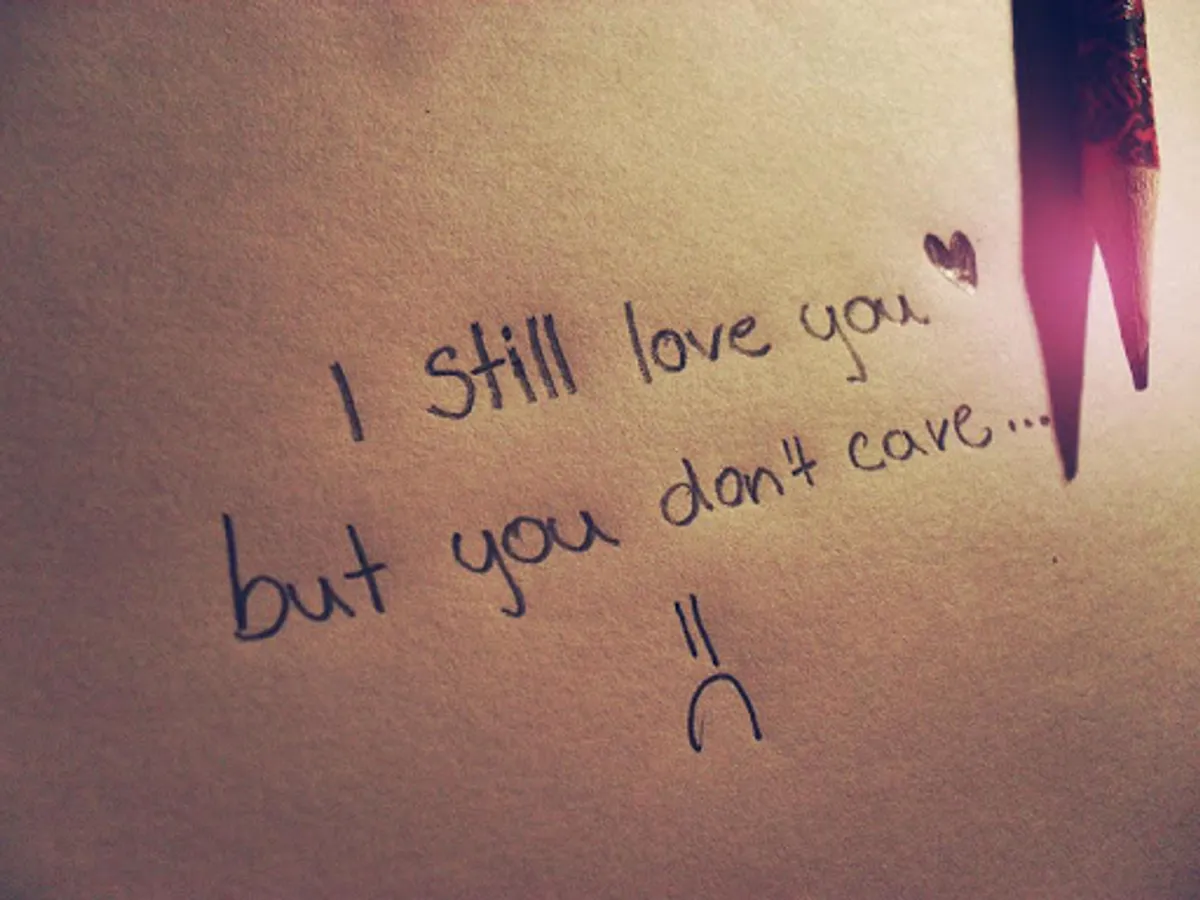 I Still love you ♥
but you don't care...
=(